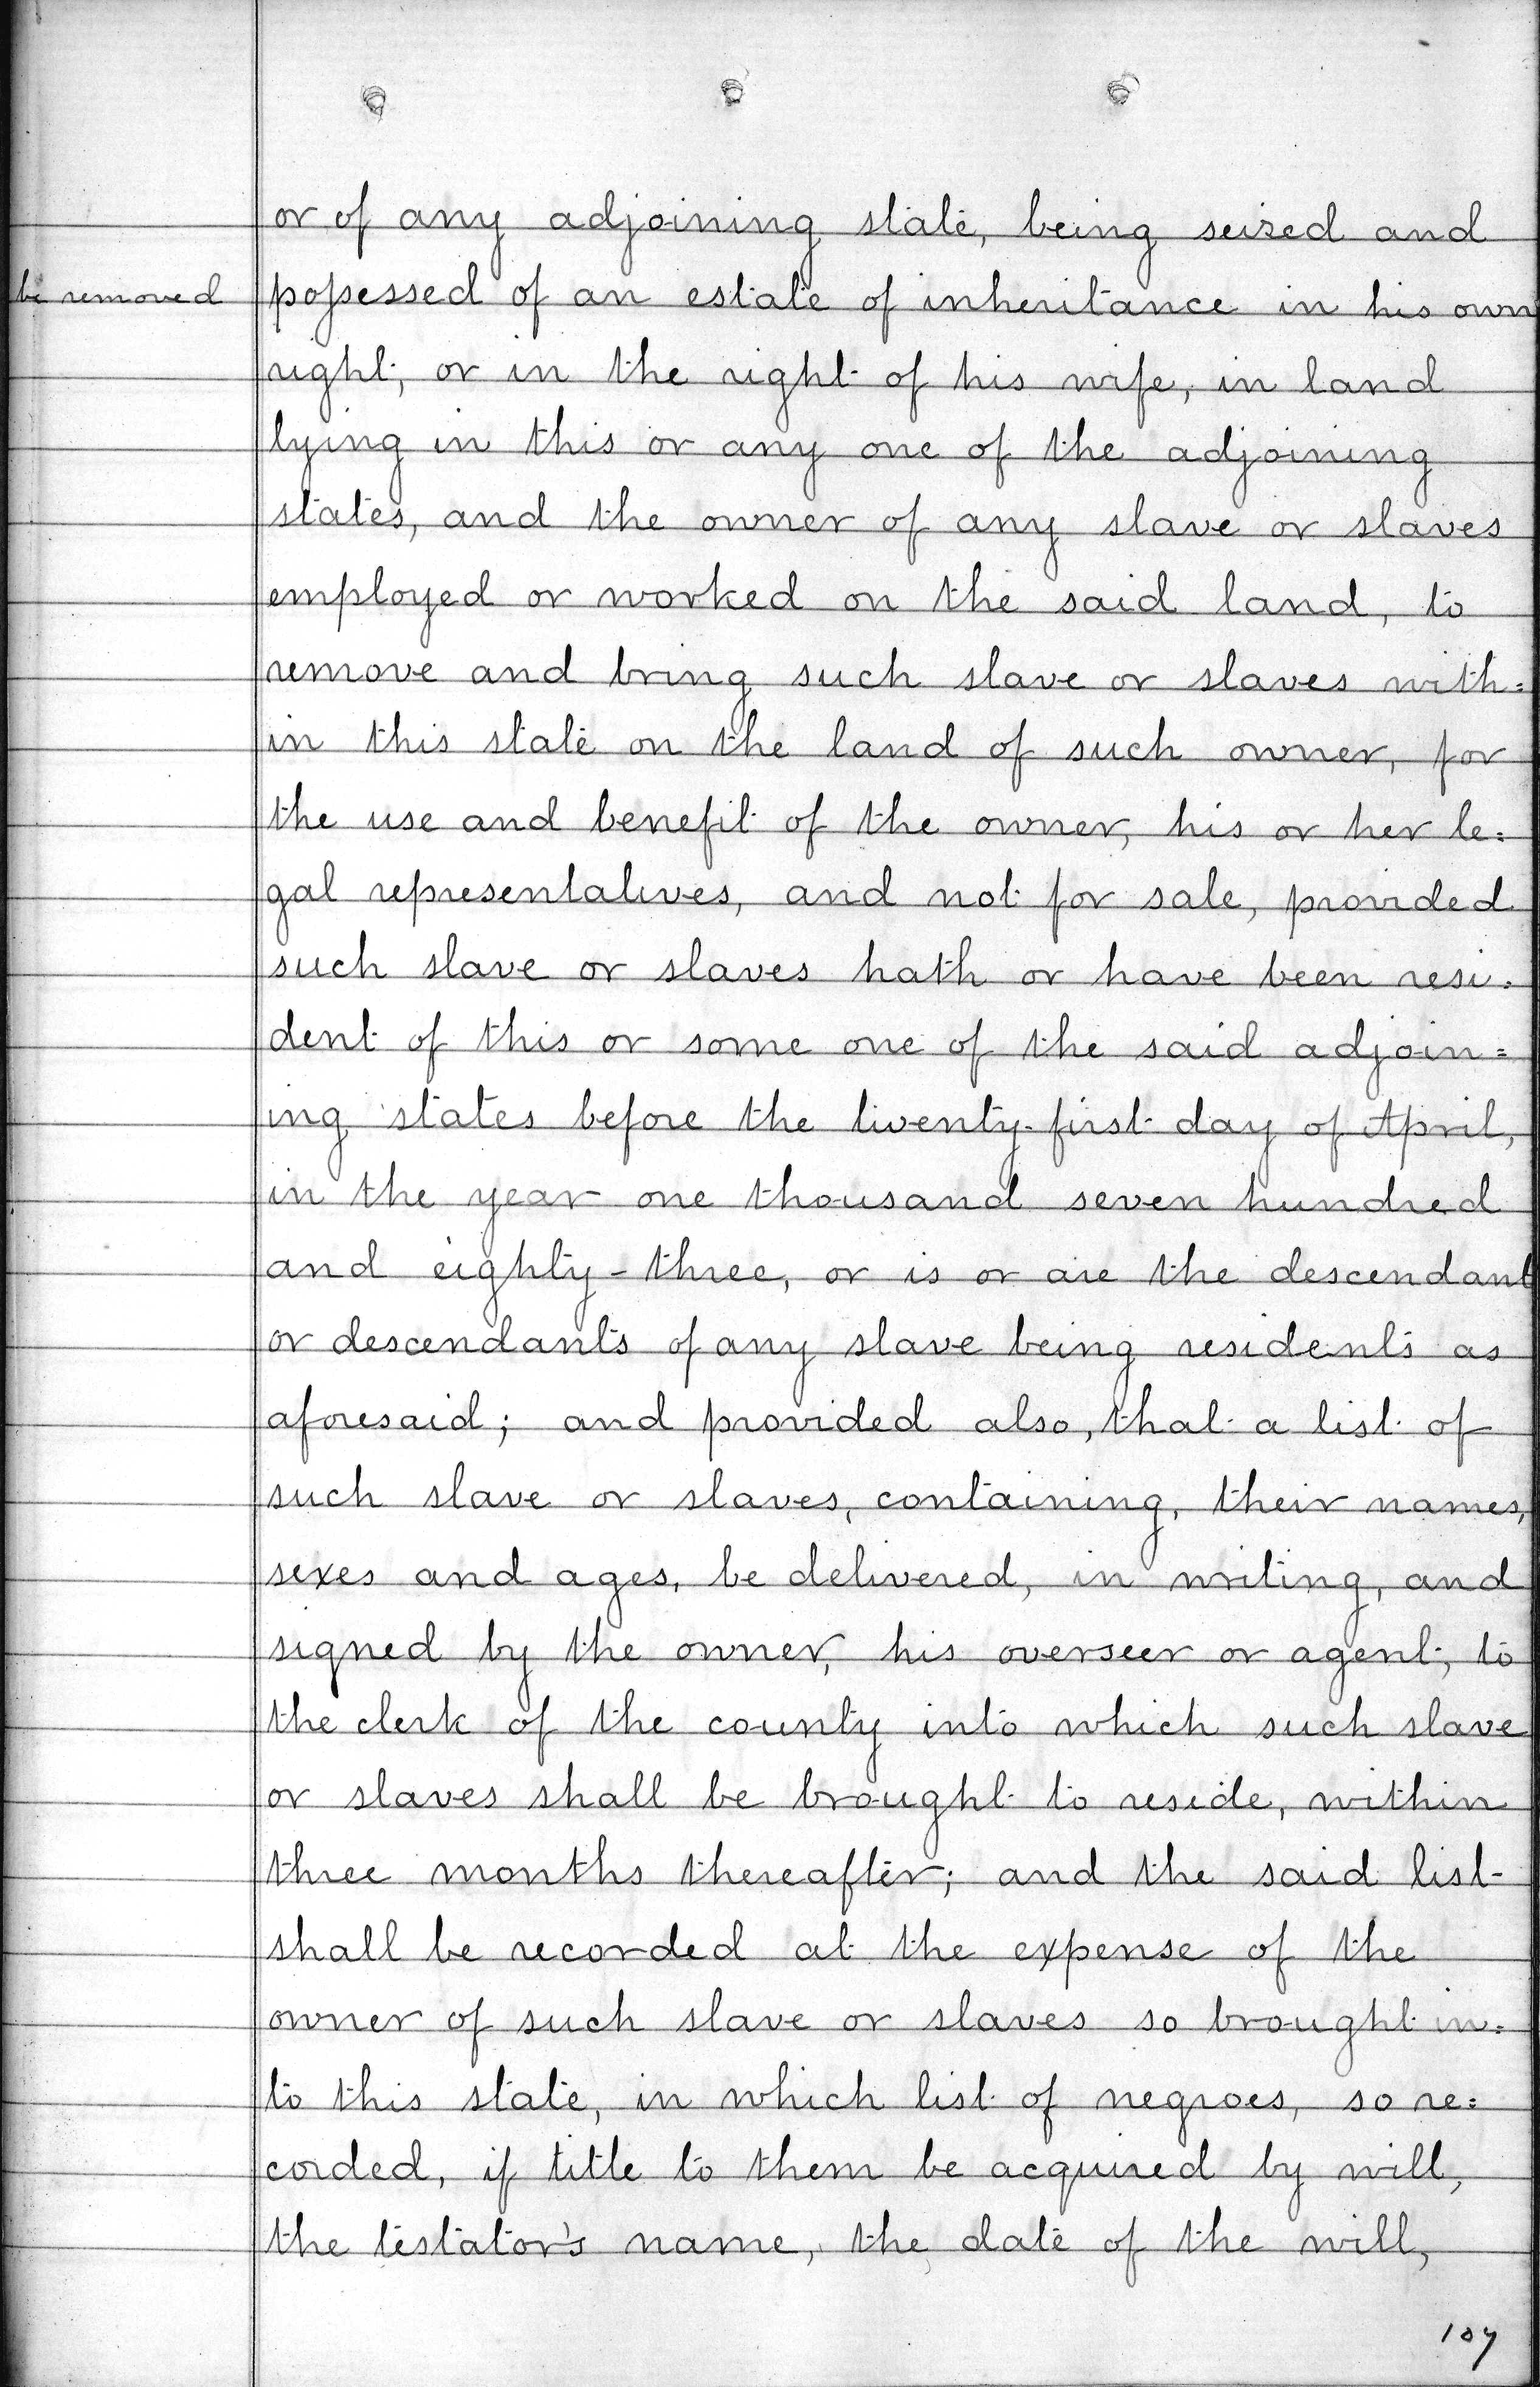 or of any adjoining state, being seized and
be removed
possessed of an estate of inheritance in his own
right, or in the right of his wife, in land
lying in this or any one of the adjoining
states, and the owner of any slave or slaves
employed or worked on the said land, to
remove and bring such slave or slaves with=
in this state on the land of such owner, for
the use and benefit of the owner, his or her le=
gal representatives, and not for sale, provided
such slave or slaves hath or have been resi=
dent of this or some one of the said adjoin=
ing states before the twenty-first day of April,
in the year one thousand seven hundred
and eighty-three, or is or are the descendant
or descendants of any slave being residents as
aforesaid; and provided also, that a list of
such slave or slaves, containing, their names,
sexes and ages, be delivered, in writing, and
signed by the owner, his overseer or agent, to
the clerk of the county into which such slave
or slaves shall be brought to reside, within
three months thereafter; and the said list
shall be recorded at the expense of the
owner of such slave or slaves so brought in=
to this state, in which list of negroes, so re=
corded, if title to them be acquired by will,
the testator's name, the date of the will,
107